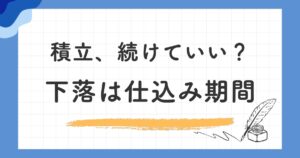 積立、続けていい？
下落は仕込み期間